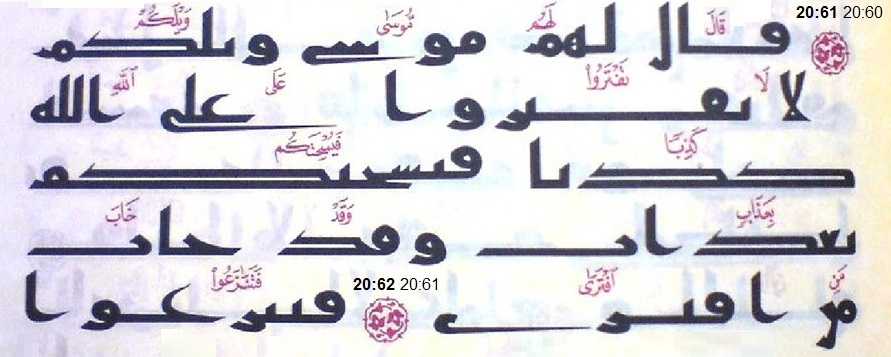 20:61 20:60
قَالَ لَهُم مُّوسَىٰ وَيْلَكُمْ
قال لهم موسى ويلكم
لَا تَفْتَرُوا۟ عَلَى ٱللَّهِ
لا تفتروا على الله
كَذِبًا فَيُسْحِتَكُم
كذبا فيسحتكم
بِعَذَابٍ وَقَدْ خَابَ
بعذاب وقد خاب
مَنِ ٱفْتَرَىٰ 20:62 20:61 فَتَنَٰزَعُوٓا۟
من افترى فتنزعوا